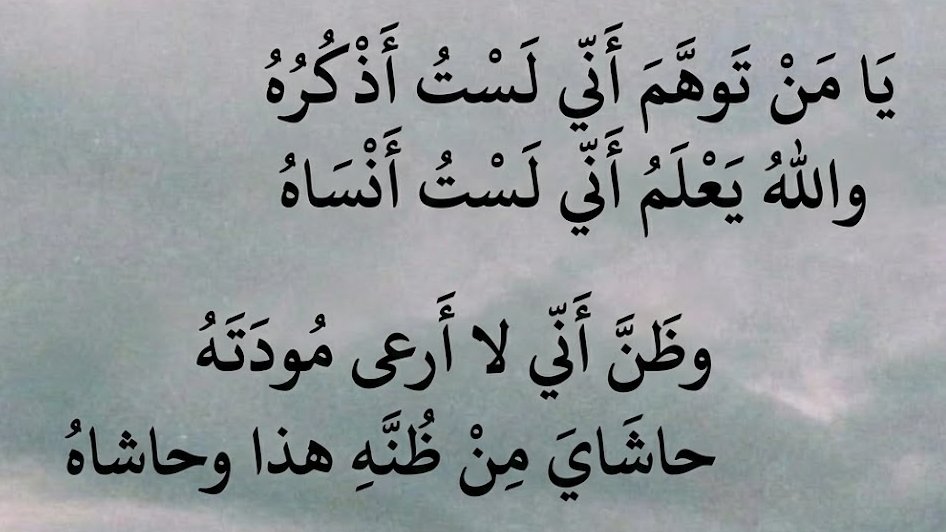 يَا مَنْ تَوهَّمَ أَنّي لَسْتُ أَذْكُرُهُ
واللهُ يَعْلَمُ أَنّي لَسْتُ أَنْسَاهُ
وظَنَّ أَنّي لا أَرعى مُودَتَهُ
حاشَايَ مِنْ ظُنَّهِ هذا وحاشاهُ